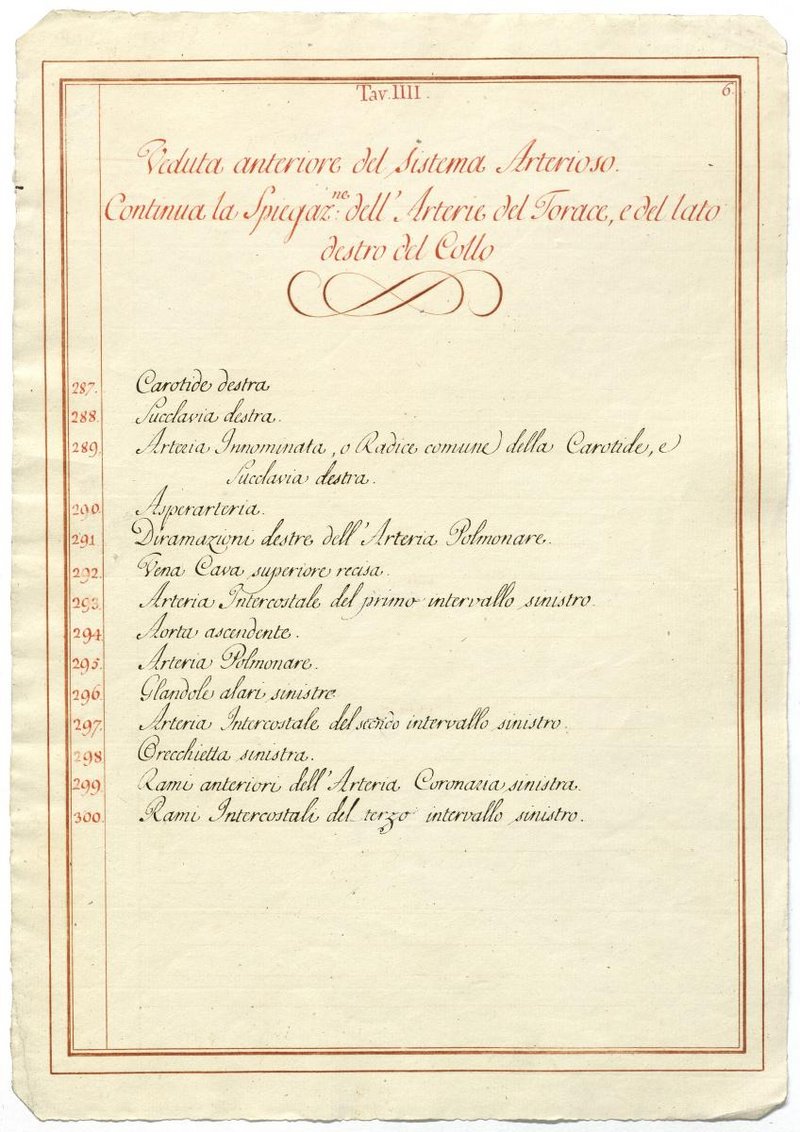 Tav. IIII.
6.
Veduta anteriore del Sistema Arterioso.
Continua la Spiegaz.ne dell'Arterie del Torace, e del lato
destro del Collo
287. Carotide destra
288. Succlavia destra.
289. Arteria Innominata, o Radice comune della Carotide, e
Succlavia destra.
290. Asperarteria.
291 Diramazioni destre dell'Arteria Polmonare.
292. Vena Cava superiore recisa.
293. Arteria Intercostale del primo intervallo sinistro.
294. Aorta ascendente.
295. Arteria Polmonare.
296. Glandole alari sinistre
297. Arteria Intercostale del secondo intervallo sinistro.
298 Orecchietta sinistra.
299. Rami anteriori dell'Arteria Coronaria sinistra.
300. Rami Intercostali del terzo intervallo sinistro.